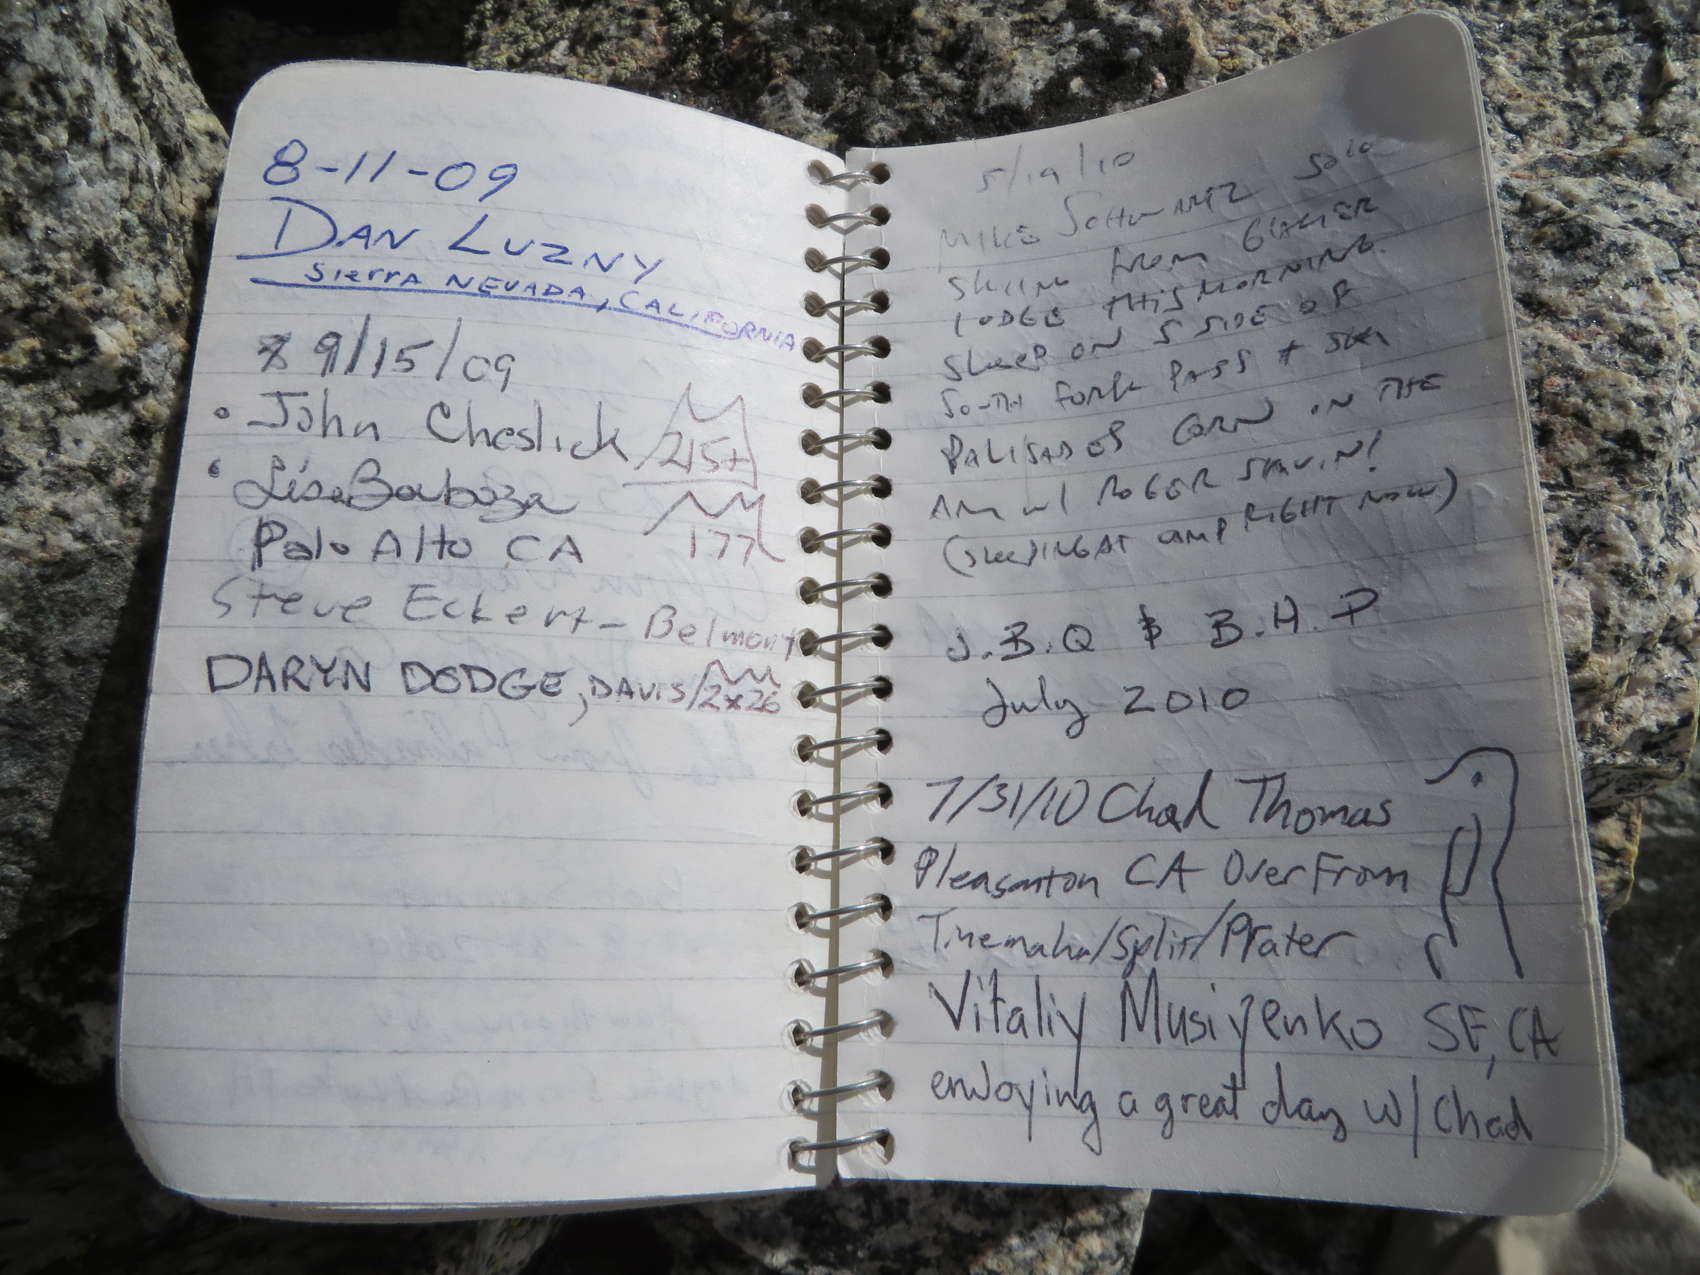 8-11-09
DAN LUZNY
SierrA NEVADA, CALIFORNIA
9/15/09
John Cheslick 215+
Lisa Barboza
Palo Alto CA 177
Steve Eckert - Belmont
DARYN DODGE, DAVIS 2x26
5/19/10
MIKE SCHWARTZ SOLO
SKIING from GLACIER
LODGE THIS MORNING.
SLEEP ON S SIDE OF
SOUTH FORK PASS + SKI
PALISADES CORN IN THE
AM w/ ROGER
(SLEEPING AT CAMP RIGHT NOW)
J.B.Q & B.H.P
July 2010
7/31/10 Chad Thomas
Pleasanton CA Over From
Tinemaha/Split/Prater
Vitaliy Musiyenko SF, CA
enjoying a great day w/ Chad